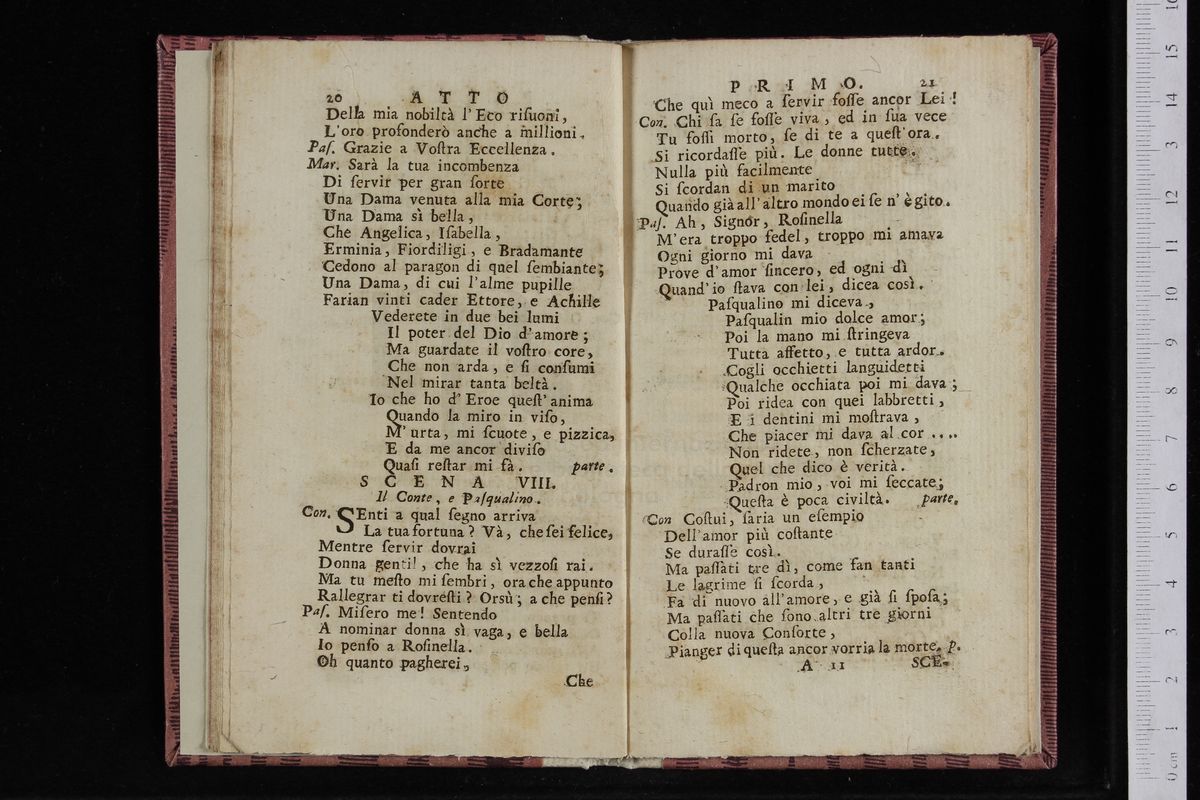 20 ATTO
Della mia nobiltà l'Eco riſuoni,
L'oro profonderò anche a millioni.
Paſ. Grazie a Voſtra Eccellenza.
Mar. Sarà la tua incombenza
Di ſervir per gran ſorte
Una Dama venuta alla mia Corte;
Una Dama sì bella,
Che Angelica, Iſabella,
Erminia, Fiordiligi, e Bradamante
Cedono al paragon di quel ſembiante;
Una Dama, di cui l'alme pupille
Farian vinti cader Ettore, e Achille
Vederete in due bei lumi
Il poter del Dio d'amore;
Ma guardate il voſtro core,
Che non arda, e ſi conſumi
Nel mirar tanta beltà.
Io che ho d'Eroe queſt'anima
Quando la miro in viſo,
M'urta, mi ſcuote, e pizzica,
E da me ancor diviſo
Quaſi reſtar mi fà. parte.
SCENA VIII.
Il Conte, e Paſqualino.
Con. SEnti a qual ſegno arriva
La tua fortuna? Và, che ſei felice,
Mentre ſervir dovrai
Donna gentil, che ha sì vezzoſi rai.
Ma tu meſto mi ſembri, ora che appunto
Rallegrar ti dovreſti? Orsù; a che penſi?
Paſ. Miſero me! Sentendo
A nominar donna sì vaga, e bella
Io penſo a Roſinella.
Oh quanto pagherei,
Che
PRIMO. 21
Che quì meco a ſervir foſſe ancor Lei!
Con. Chi ſa ſe foſſe viva, ed in ſua vece
Tu foſſi morto, ſe di te a queſt'ora.
Si ricordaſſe più. Le donne tutte.
Nulla più facilmente
Si ſcordan di un marito
Quando già all'altro mondo ei ſe n'è gito.
Paſ. Ah, Signor, Roſinella
M'era troppo fedel, troppo mi amava
Ogni giorno mi dava
Prove d'amor ſincero, ed ogni dì
Quand'io ſtava con lei, dicea così.
Paſqualino mi diceva,
Paſqualin mio dolce amor;
Poi la mano mi ſtringeva
Tutta affetto, e tutta ardor.
Cogli occhietti languidetti
Qualche occhiata poi mi dava;
Poi ridea con quei labbretti,
E i dentini mi moſtrava,
Che piacer mi dava al cor ....
Non ridete, non ſcherzate,
Quel che dico è verità.
Padron mio, voi mi ſeccate;
Queſta è poca civiltà. parte.
Con Coſtui, ſaria un eſempio
Dell'amor più coſtante
Se duraſſe così.
Ma paſſati tre dì, come fan tanti
Le lagrime ſi ſcorda,
Fa di nuovo all'amore, e già ſi ſpoſa;
Ma paſſati che ſono altri tre giorni
Colla nuova Conſorte,
Pianger di queſta ancor vorria la morte. p.
A 11 SCE-